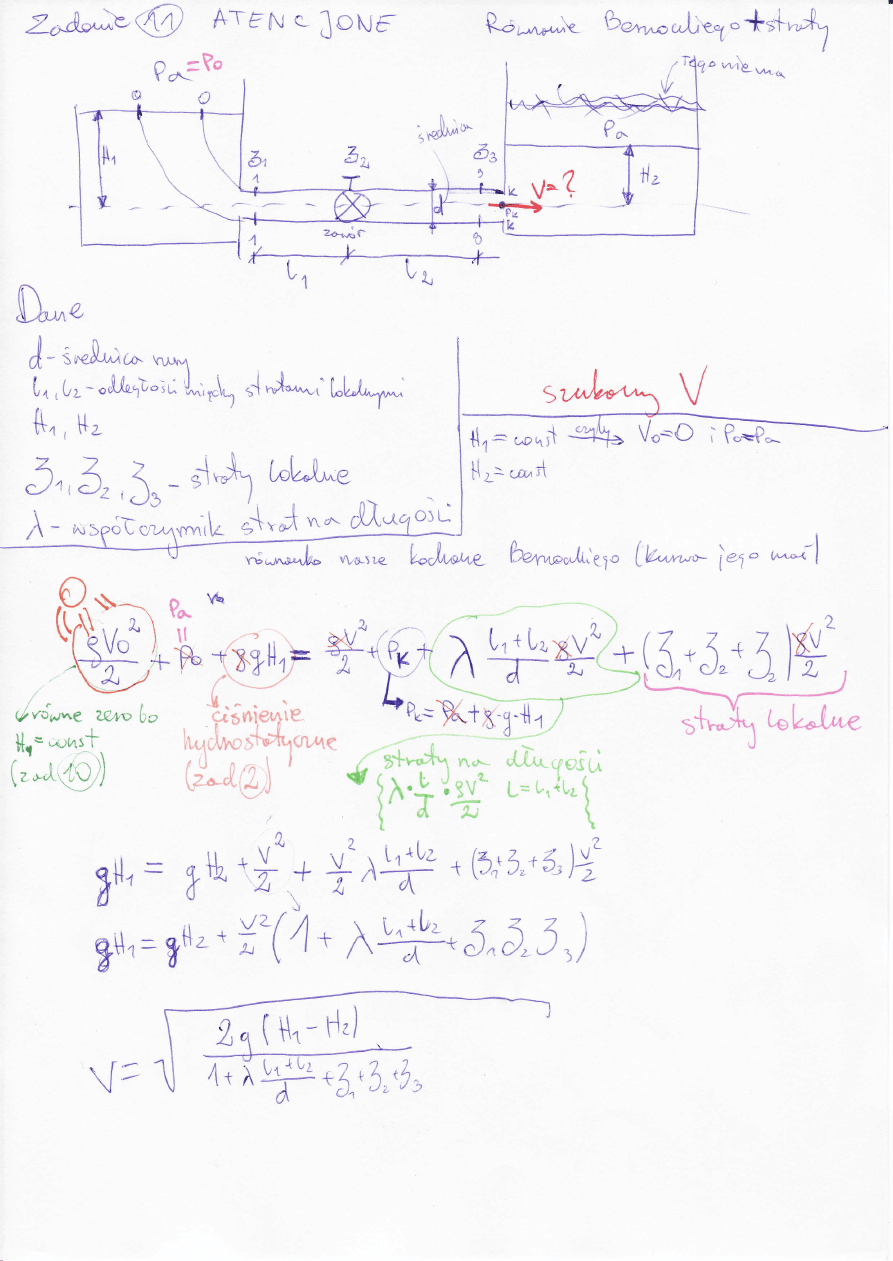 Zadanie 11 ATENCJONE Równanie Bernouliego + straty
Pa = Po
tego nie ma
0 0
Pa
średnica
H1
ʒ1 ʒ2 ʒ3
H2
V = ?
1 d K
PK
K
zawór
1
L1 L2
Dane
d - średnica rury
L1, L2 - odległości między stratami lokalnymi
H1, H2
ʒ1, ʒ2, ʒ3 - straty lokalne
λ - współczynnik strat na długości
szukamy V
H1 = const czyli → V0 = 0 i Po = Pa
H2 = const
równanko nasze kochane Bernouliego (kurwa jego mać)
Pa
||
ϱV0²/2 + Po + ϱgH1 = ϱV²/2 + PK + λ (L1+L2)/d ϱV²/2 + (ʒ1 + ʒ2 + ʒ2) ϱV²/2
PK = Pa + ϱ·g·H1
straty lokalne
równe zero bo
H1 = const
(zad 10)
ciśnienie
hydrostatyczne
(zad 2)
straty na długości
{λ · L/d · ϱV²/2 L = L1+L2}
gH1 = gH2 + V²/2 + V²/2 λ (L1+L2)/d + (ʒ1+ʒ2+ʒ3) V²/2
gH1 = gH2 + V²/2 (1 + λ (L1+L2)/d + ʒ1 ʒ2 ʒ3)
V = √(2g(H1 - H2) / (1 + λ (L1+L2)/d + ʒ1 + ʒ2 + ʒ3))